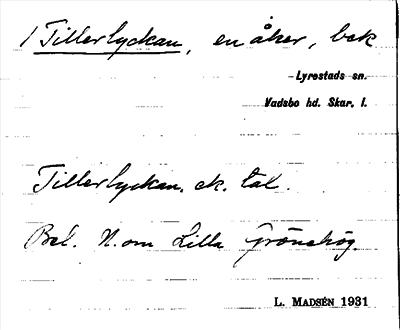 1 Tillerlyckan, en åker, bek
Lyrestads sn.
Vadsbo hd. Skar. l.
Tillerlyckan. ek. tal.
Bel. N. om Lilla Grönehög.
L. MADSÉN 1931